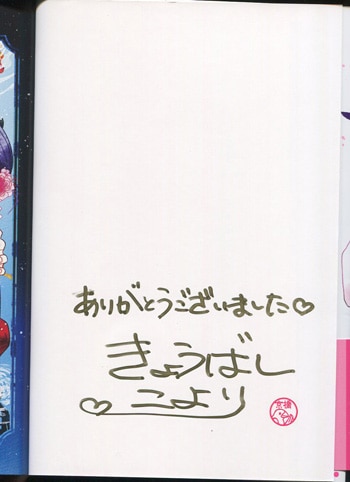 ありがとうございました♡
きょうばし
♡こより
京橋